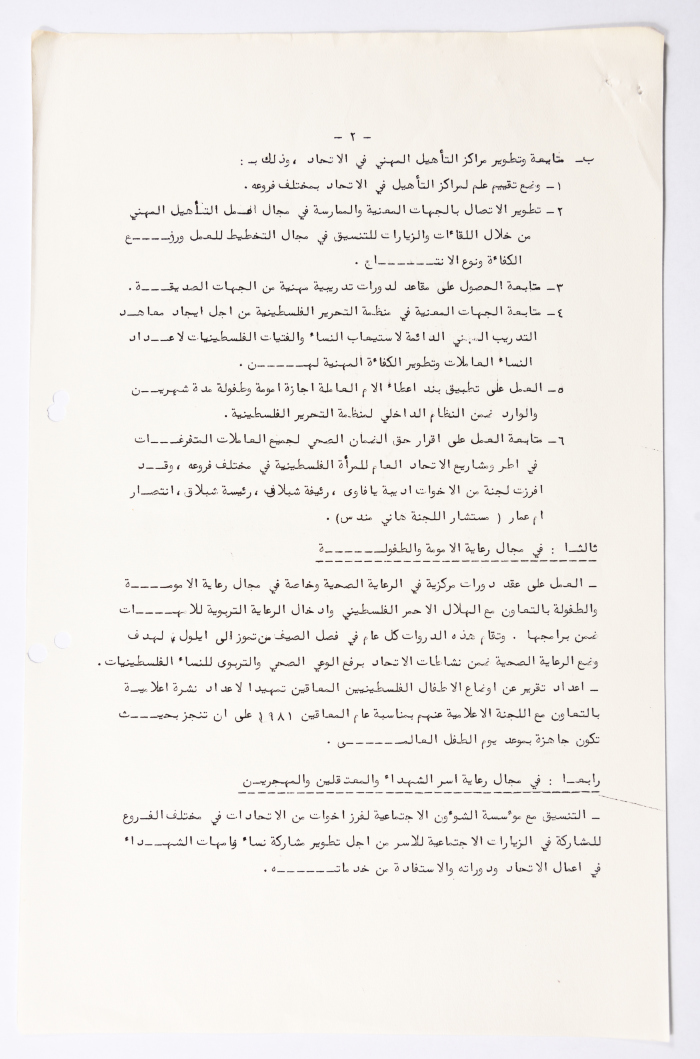 - ٢ -
ب‍ـ متابعة وتطوير مراكز التأهيل المهني في الاتحاد ، وذلك بـ :
١ـ وضع تقييم علم لمراكز التأهيل في الاتحاد بمختلف فروعه .
٢ـ تطوير الاتصال بالجهات المعنية والممارسة في مجال العمل التأهيل المهني
من خلال اللقاءات والزيارات للتنسيق في مجال التخطيط للعمل ورفـــــع
الكفاءة ونوع الانتــــــــاج .
٣ـ متابعة الحصول على مقاعد لدورات تدريبية مهنية من الجهات الصديقـــة .
٤ـ متابعة الجهات المعنية في منظمة التحرير الفلسطينية من اجل ايجاد معاهـد
التدريب المهني الدائمة لاستيعاب النساء والفتيات الفلسطينيات لاعـــداد
النساء العاملات وتطوير الكفاءة المهنية لهــــــن .
٥ـ العمل على تطبيق بند اعطاء الام العاملة اجازة امومة وطفولة مدة شهريـــن
والوارد ضمن النظام الداخلي لمنظمة التحرير الفلسطينية .
٦ـ متابعة العمل على اقرار حق الضمان الصحي لجميع العاملات المتفرغـــات
في اطر ومشاريع الاتحاد العام للمرأة الفلسطينية في مختلف فروعه ، وقـــد
افرزت لجنة من الاخوات اديبة يافاوى ، رئيفة شبلاق ، رئيسة شبلاق ، انتصـار
ام عمار ( مستشار اللجنة هاني مندس) .
ثالثـا : في مجال رعاية الامومة والطفولــــــــة
ـ العمل على عقد دورات مركزية في الرعاية الصحية وخاصة في مجال رعاية الامومـــــة
والطفولة بالتعاون مع الهلال الاحمر الفلسطيني وادخال الرعاية التربوية للامهـــــات
ضمن برامجها . وتقام هذه الدروات كل عام في فصل الصيف من تموز الى ايلول ، لهدف
وضع الرعاية الصحية ضمن نشاطات الاتحاد برفع الوعي الصحي والتربوى للنساء الفلسطينيات .
ـ اعداد تقرير عن اوضاع الاطفال الفلسطينيين المعاقين تمهيدا لاعداد نشرة اعلاميـة
بالتعاون مع اللجنة الاعلامية عنهم بمناسبة عام المعاقين ١٩٨١ ، على ان تنجز بحيـــث
تكون جاهزة بموعد يوم الطفل العالمـــــــى .
رابعـا : في مجال رعاية اسر الشهداء والمعتقلين والمهجريــن
ـ التنسيق مع مؤسسة الشؤون الاجتماعية لفرز اخوات من الاتحادات في مختلف الفـروع
للمشاركة في الزيارات الاجتماعية للاسر من اجل تطوير مشاركة نساء وامهات الشهـــداء
في اعمال الاتحاد ودوراته والاستفادة من خدماتـــــــه .